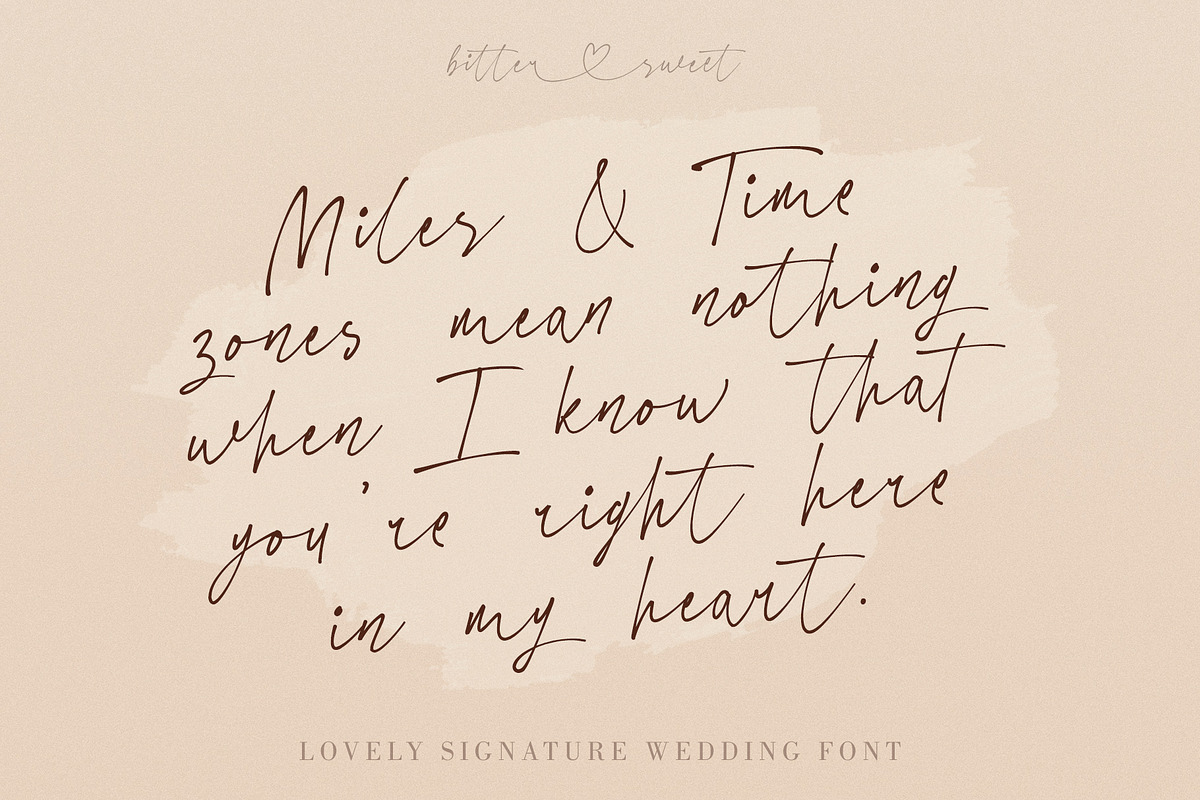 bitter sweet
Miles & Time
zones mean nothing
when I know that
you're right here
in my heart.
LOVELY SIGNATURE WEDDING FONT